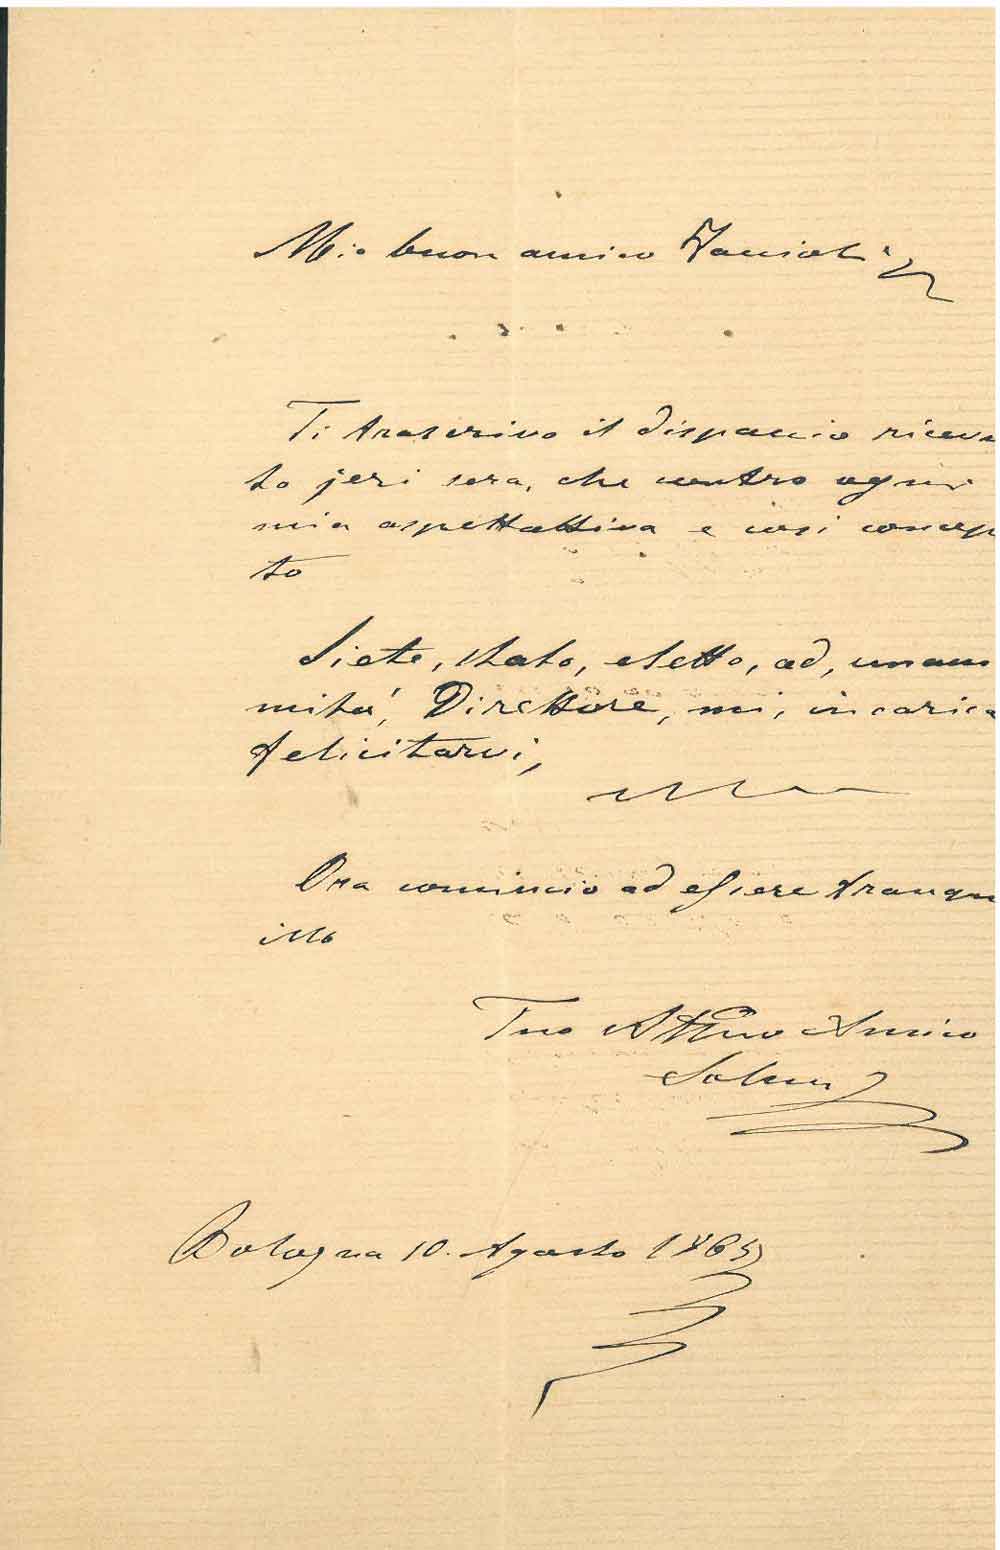 Mio buon amico
Ti trascrivo il dispaccio ricevu
to jeri sera, che contro ogni
mia aspettattiva e così concep
to
Siete, stato, eletto, ad, unani
mità, Direttore, mi, incarica
felicitarvi,
Ora comincio ad essere tranqu
illo
Tuo Amico
Bologna 10. Agosto 1865